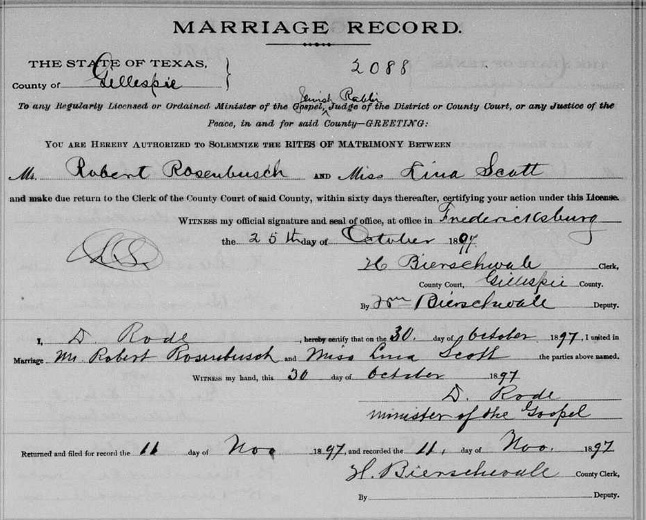 MARRIAGE RECORD.
THE STATE OF TEXAS, } 2088
County of Gillespie
Jewish Rabbi
To any Regularly Licensed or Ordained Minister of the Gospel, Judge of the District or County Court, or any Justice of the
Peace, in and for said County—GREETING:
YOU ARE HEREBY AUTHORIZED TO SOLEMNIZE THE RITES OF MATRIMONY BETWEEN
Mr. Robert Rosenbusch AND Miss Lina Scott
and make due return to the Clerk of the County Court of said County, within sixty days thereafter, certifying your action under this License.
WITNESS my official signature and seal of office, at office in Fredericksburg
the 25th day of October 1897
L.S.
H Bierschwale Clerk,
County Court, Gillespie County.
By Wm Bierschwale Deputy.
I, D. Rode, hereby certify that on the 30. day of October 1897, I united in
Marriage Mr. Robert Rosenbusch and Miss Lina Scott the parties above named.
WITNESS my hand, this 30 day of October 1897
D. Rode
minister of the Gospel
Returned and filed for record the 11 day of Nov 1897, and recorded the 11, day of Nov. 1897
H. Bierschwale County Clerk,
By Deputy.